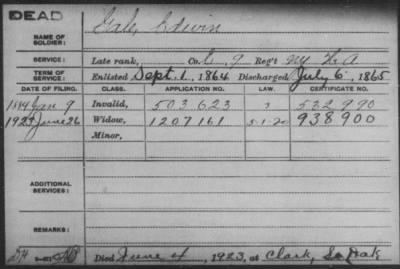 DEAD
NAME OF SOLDIER: Gale, Edwin
SERVICE: Late rank, Co. C, 9 Reg't NY H A
TERM OF SERVICE: Enlisted Sept. 1, 1864 Discharged July 6, 1865
DATE OF FILING. CLASS. APPLICATION NO. LAW. CERTIFICATE NO.
1884 Jan 9 Invalid, 503 623 532 990
1924 June 26 Widow, 1207161 5-1-20 938900
Minor,
ADDITIONAL SERVICES:
REMARKS:
Died June 4, 1923, at Clark, So Dak